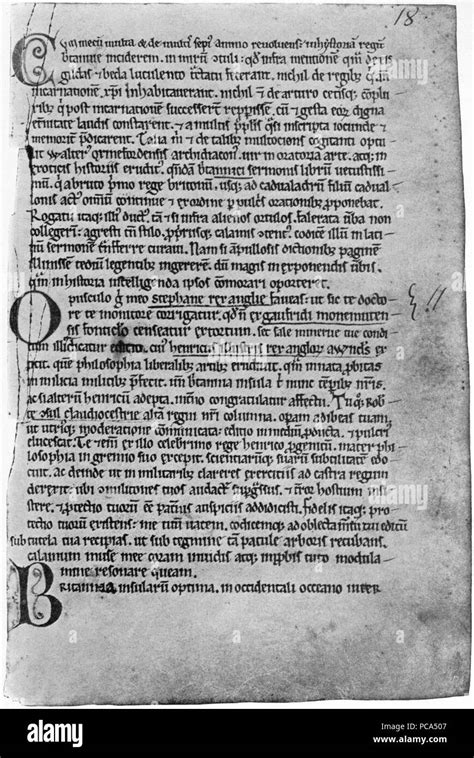 18
Cum mecū multa & de multis sepius animo revoluens: in hystoriam regū
britannie inciderem. in mirū otuli: qđ infra mentionē quā de eis
gildas & beda luculento tractatu fecerant. nichil de regibus qui ante
incarnationē xp̄i inhabitauerant. nichil & de arturo ceterisq; cōplu
ribus qui post incarnationē successerunt reppissem. cū & gesta eoꝝ digna
eternitate laudis constarent. & a multis pp̄lis quasi inscripta iocunde &
memorit̾
& de talibus multociens cogitanti optu
lit Walter' archidiacon'. uir in oratoria arte. atq; in
exoticis historiis erudit'. quendā britannici sermonis librū uetustissimū.
qui a bruto primo rege britonū. usq; ad cadualadrū filiū cadual
lonis actus omniū continue & ex ordine
proponebat.
Rogatu itaq; illi' duct'. tā & si infra alienos ortulos. falerata uerba non
collegerī. agresti tā stilo. propriisq; calamis codicē illū in lati
nū sermonē transferre curaui. Nam si ampullosis dictionibus paginā
illinissē tediū legentibus ingererē. dū magis in exponendis uerbis.
quā in historia intelligenda ipsos cōmorari oporteret.
Opusculo g̾ meo stephane rex anglie faueas. ut sic te docto
re te monitore corrigatur. qđ nō ex gaufridi monemutensis
fonticulo censeatur exortum. sed sale minerue tue condi
tum illius dicatur editio. cui' henric' illustris rex angloꝝ auuncls̾ ex
titit. quē philosophia liberalibus artibus erudiuit. quē innata probitas
in milicia militibus prefecit. unde britannia insula tibi nunc tēporibus nr̄is.
ac si alterū henricū adepta. interno congratulatur affectu. Tu quoq; Rob
te consul claudiocestrie altera regni nr̄i columna. operam adhibeas tuam.
ut utriusq; moderatione cōmunicata. editio in mediū producta. & pulcri'
elucescat. Te etenī ex illo celebrimo rege henrico progenitū. mater phi
losophia in gremio suo excepit. scientiarūq; suarū subtilitatē edo
cuit. ac deinde ut in militaribus clareres exerciciis ad castra regum
direxit. ubi cōmilitones tuos audacter supgressus. & terror hostium insi
stere. & protectio tuorū ē paternis auspiciis addidicisti. fidelis itaq; pro
tectio tuorū existens: me tuū uatem. codicemq; ad oblectam̄tū tui editum
sub tutela tua recipias. ut sub tegmine tā patule arboris recubans.
calamum muse mee coram inuidis atq; improbis tuto modula
mine resonare queam.
Britannia insularū optima. in occidentali occeano inter
alamy
Image ID: PCA507
www.alamy.com